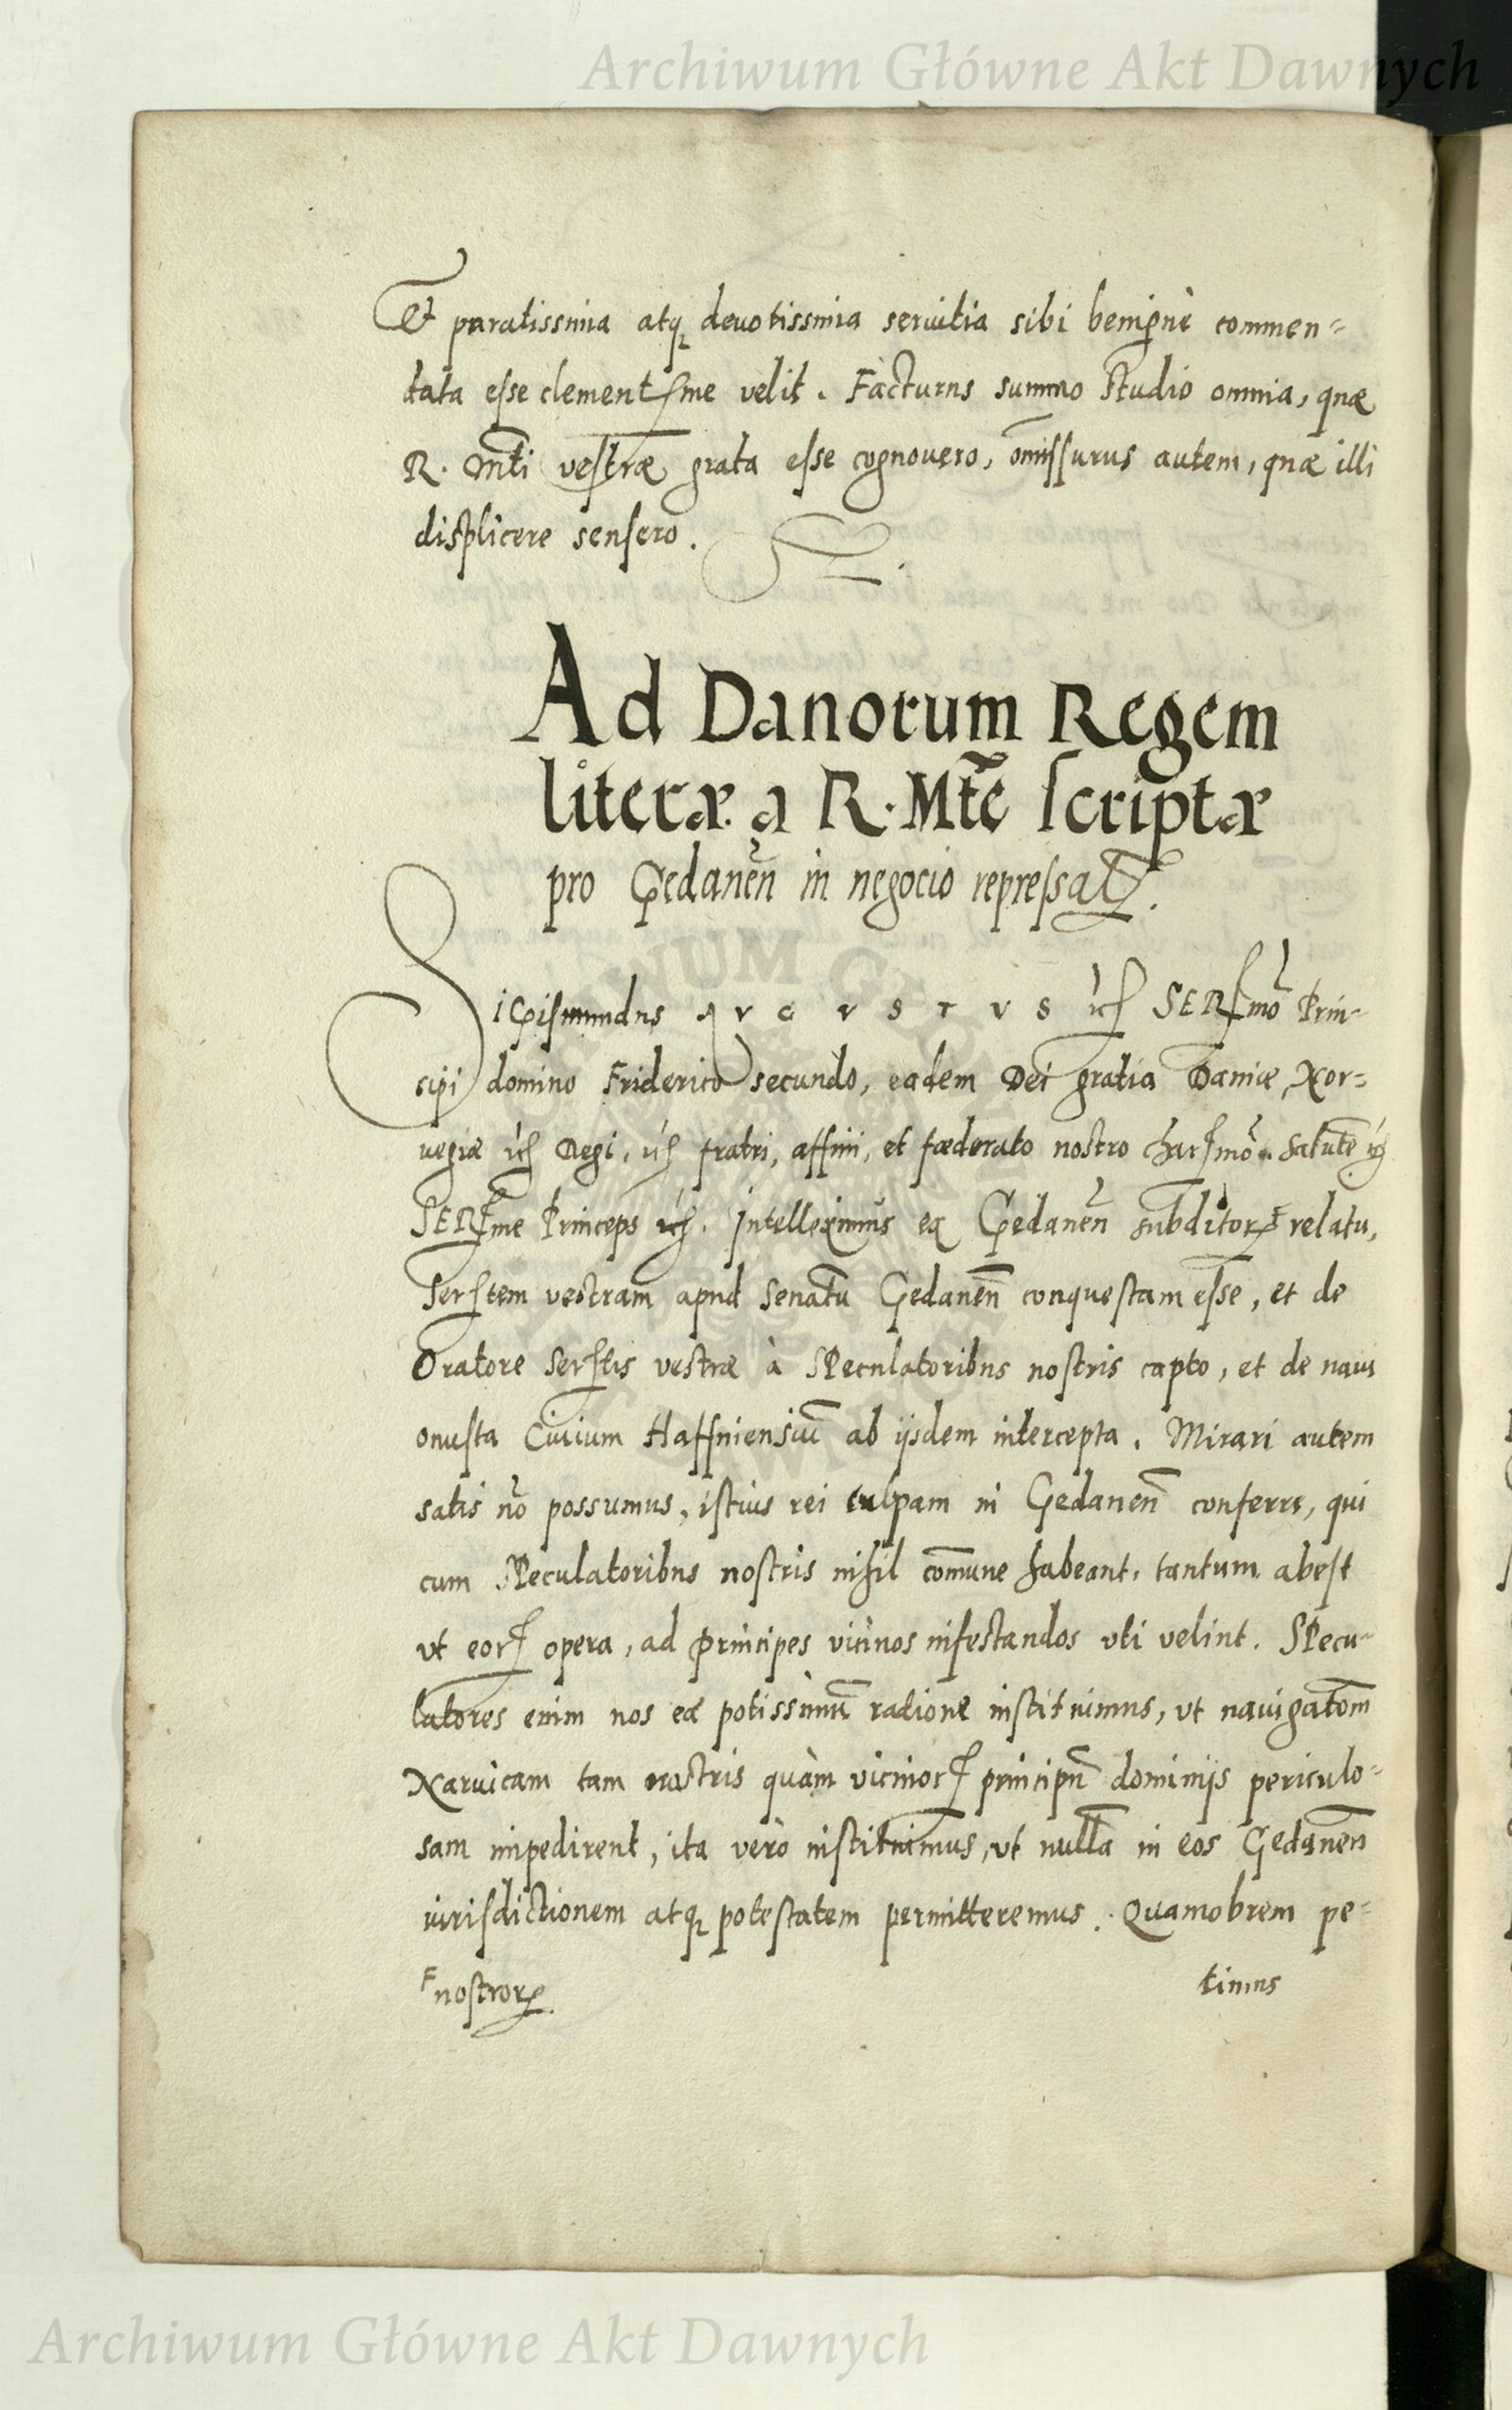 Archiwum Główne Akt Dawnych
Et paratissima atq devotissima seruitia sibi benignè commen=
tata esse clementissme velit. Facturus summo studio omnia, quæ
R. Mti vestræ grata esse cognouero, omissurus autem, quæ illi
displicere sensero.
Ad Danorum Regem
literæ a R. Mte scriptæ
pro Gedanen in negocio repressal.
Sigismundus Avgvstvs etc SERmo Prin-
cipi domino Friderico secundo, eadem Dei gratia Daniæ, Nor=
uegiæ etc Regi, etc fratri, affini, et fœderato nostro charmo. Salute etc
SERme Princeps etc. Intelleximus ex Gedanen subditor F relatu,
Sertem vestram apud Senatu Gedanen conquestam esse, et de
Oratore Sertis vestræ à Speculatoribus nostris capto, et de naui
onusta Ciuium Haffniensiu ab ijsdem intercepta. Mirari autem
satis no possumus, istius rei culpam in Gedanen conferri, qui
cum Speculatoribus nostris nihil comune habeant, tantum abest
vt eor opera, ad principes vicinos infestandos vti velint. Specu-
latores enim nos ea potissimu ratione instituimus, vt nauigatom
Naruicam tam nostris quàm vicinior principu dominijs periculo=
sam impedirent, ita verò instituimus, vt nulla in eos Gedanen
iurisdictionem atq potestatem permitteremus. Quamobrem pe=
F nostror
timus
Archiwum Główne Akt Dawnych